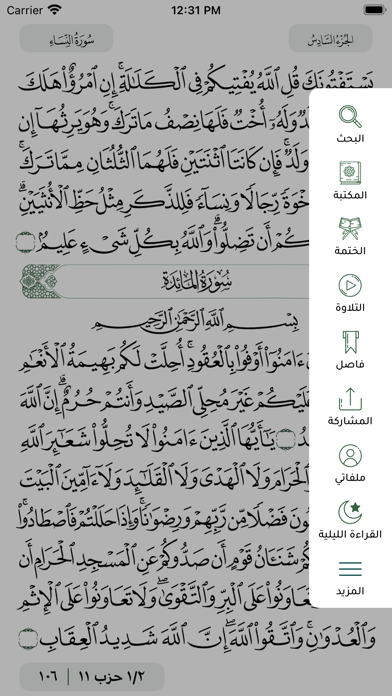 Carrier 12:31 PM
سُورَةُ النِّسَاءِ
الجُزءُ السَّادِسُ
يَسْتَفْتُونَكَ قُلِ ٱللَّهُ يُفْتِيكُمْ فِي ٱلْكَلَـٰلَةِۚ إِنِ ٱمْرُؤٌاْ هَلَكَ
وَلَدٌ وَلَهُۥٓ أُخْتٌ فَلَهَا نِصْفُ مَا تَرَكَۚ وَهُوَ يَرِثُهَآ إِن
وَلَدٌۚ فَإِن كَانَتَا ٱثْنَتَيْنِ فَلَهُمَا ٱلثُّلُثَانِ مِمَّا تَرَكَۚ
خْوَةً رِّجَالًا وَنِسَآءً فَلِلذَّكَرِ مِثْلُ حَظِّ ٱلْأُنثَيَيْنِۗ
كُمْ أَن تَضِلُّواْۗ وَٱللَّهُ بِكُلِّ شَىْءٍ عَلِيمٌۢ
سُورَةُ المَائِدَةِ
بِسْمِ ٱللَّهِ ٱلرَّحْمَـٰنِ ٱلرَّحِيمِ
ءَامَنُوٓاْ أَوْفُواْ بِٱلْعُقُودِۚ أُحِلَّتْ لَكُم بَهِيمَةُ ٱلْأَنْعَـٰمِ
عَلَيْكُمْ غَيْرَ مُحِلِّي ٱلصَّيْدِ وَأَنتُمْ حُرُمٌۗ إِنَّ ٱللَّهَ
يَـٰٓأَيُّهَا ٱلَّذِينَ ءَامَنُواْ لَا تُحِلُّواْ شَعَـٰٓئِرَ ٱللَّهِ
ٱلْحَرَامَ وَلَا ٱلْهَدْىَ وَلَا ٱلْقَلَـٰٓئِدَ وَلَآ ءَآمِّينَ ٱلْبَيْتَ
ونَ فَضْلًا مِّن رَّبِّهِمْ وَرِضْوَٰنًاۚ وَإِذَا حَلَلْتُمْ فَٱصْطَادُواْۚ
كُمْ شَنَـَٔانُ قَوْمٍ أَن صَدُّوكُمْ عَنِ ٱلْمَسْجِدِ ٱلْحَرَامِ أَن
عَاوَنُواْ عَلَى ٱلْبِرِّ وَٱلتَّقْوَىٰۖ وَلَا تَعَاوَنُواْ عَلَى ٱلْإِثْمِ
وَٱلْعُدْوَٰنِۚ وَٱتَّقُواْ ٱللَّهَۖ إِنَّ ٱللَّهَ شَدِيدُ ٱلْعِقَابِ
البحث
المكتبة
الختمة
التلاوة
فاصل
المشاركة
ملفاتي
القراءة الليلية
المزيد
١/٢ حزب ١١ | ١٠٦